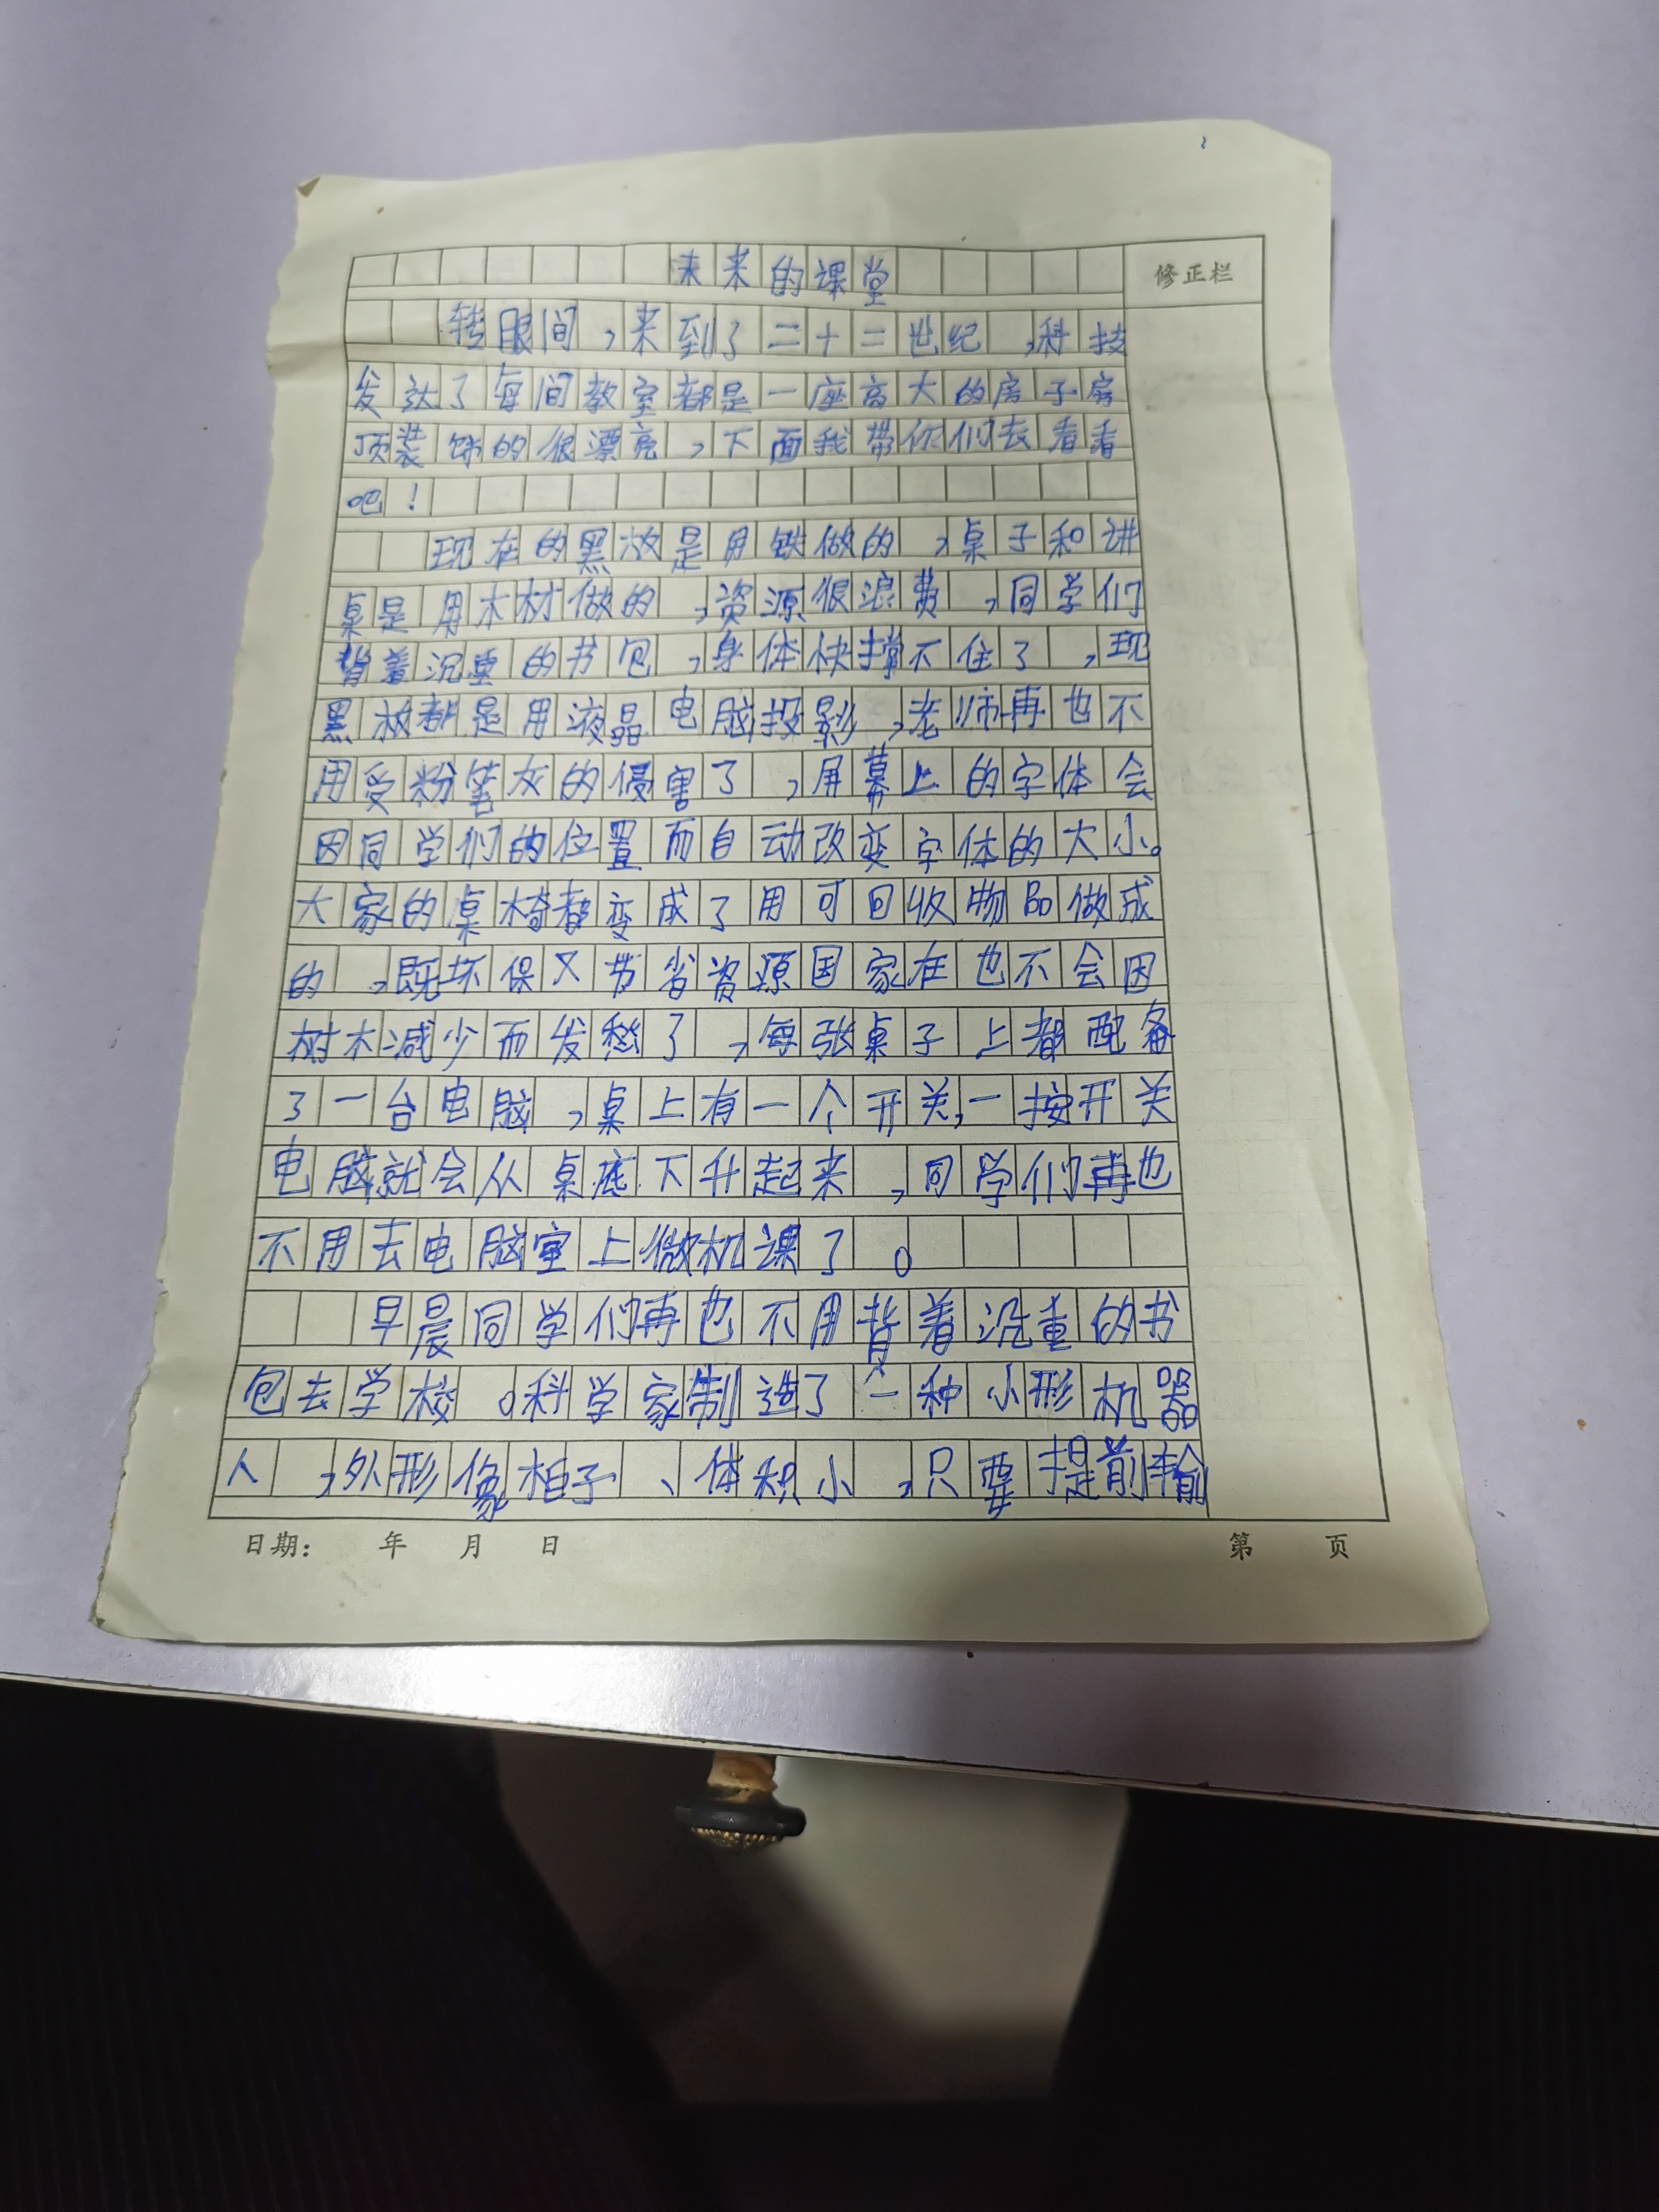 未来的课堂
修正栏
转眼间,来到了二十二世纪,科技
发达了每间教室都是一座高大的房子房
顶装饰的很漂亮,下面我带你们去看看
吧!
现在的黑板是用铁做的,桌子和讲
桌是用木材做的,资源很浪费,同学们
背着沉重的书包,身体快撑不住了,现
黑板都是用液晶电脑投影,老师再也不
用受粉笔灰的侵害了,屏幕上的字体会
因同学们的位置而自动改变字体的大小。
大家的桌椅都变成了用可回收物品做成
的,既环保又节省资源国家在也不会因
树木减少而发愁了,每张桌子上都配备
了一台电脑,桌上有一个开关,一按开关
电脑就会从桌底下升起来,同学们再也
不用去电脑室上微机课了。
早晨同学们再也不用背着沉重的书
包去学校。科学家制造了一种小形机器
人,外形像柏子、体积小,只要提前输
日期: 年 月 日
第 页